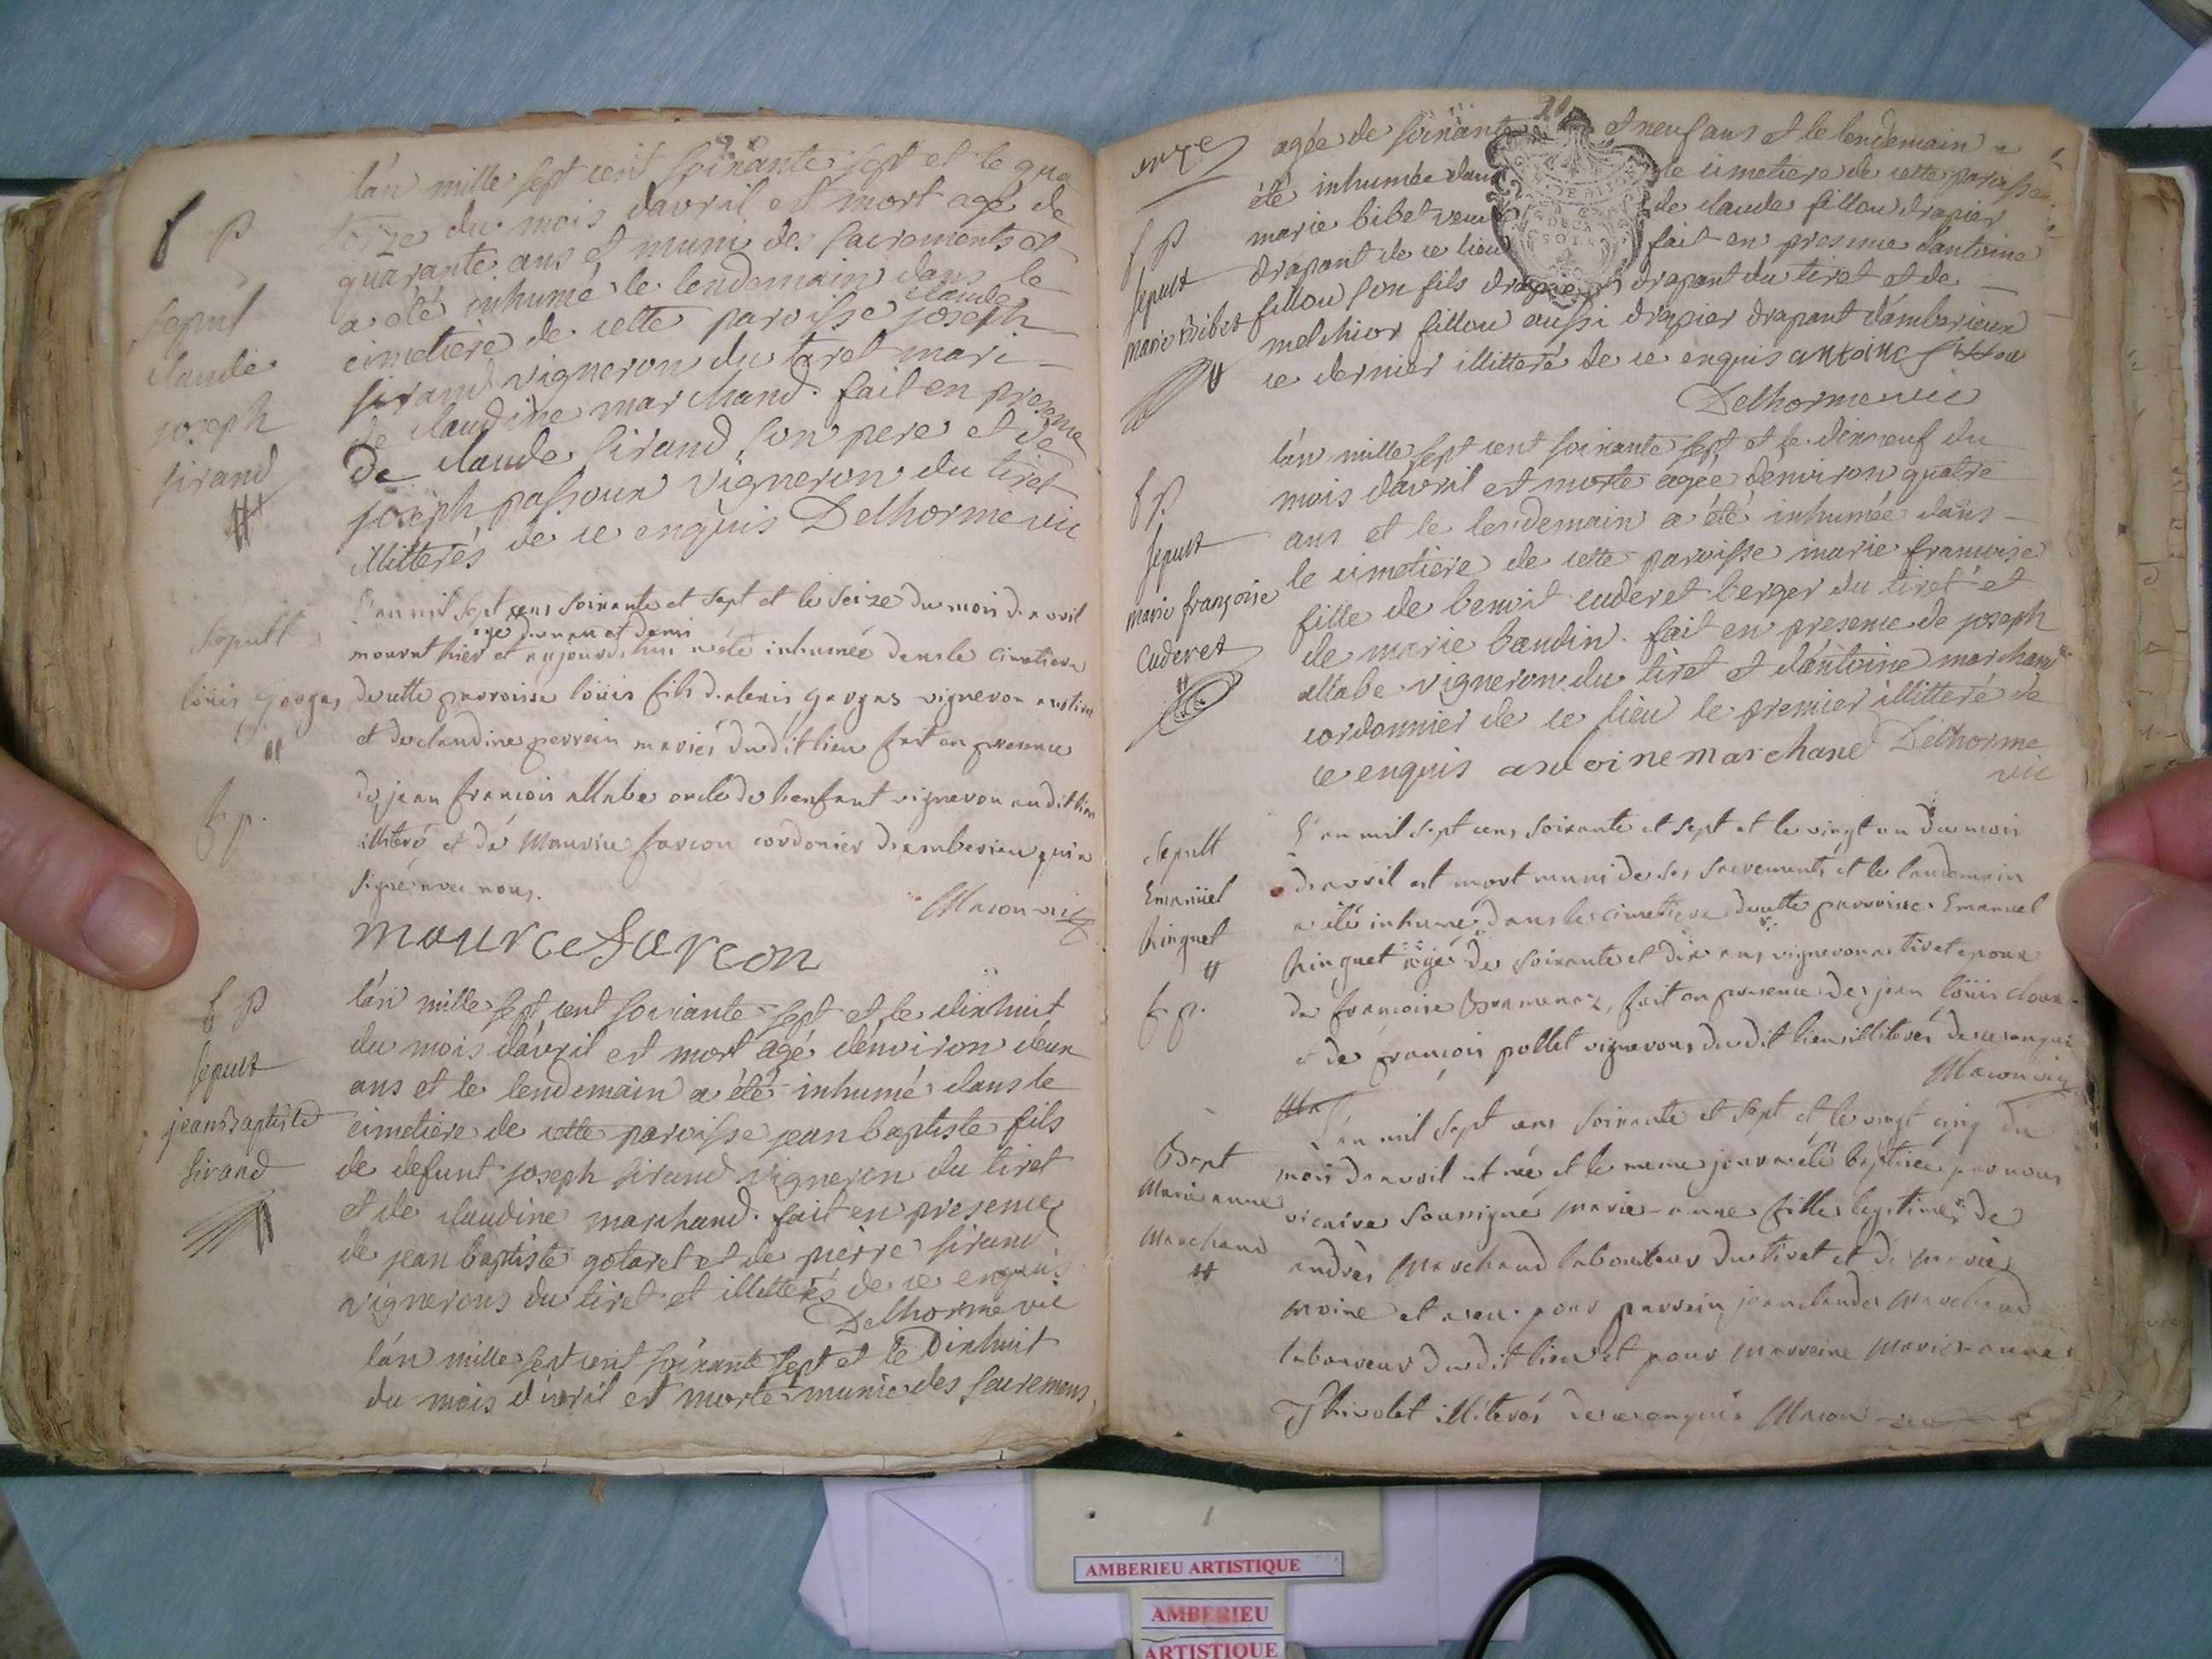 20
l'an mille sept cent soixante sept et le qua
torze du mois d'avril est mort agé de
quarante ans et muni des sacrements et
a eté inhumé le lendemain dans le
cimetiere de cette paroisse claude joseph
sirand vigneron du tiret mari
de claudine marchand. fait en presence
de claude sirand son pere et de
joseph passoux vigneron du tiret
illitterés de ce enquis Delhorme vic
f p
sepul
claude
joseph
sirand
L'an mil sept cens soixante et sept et le seize du mois d'avril
mourut hier agé d'un an et demi et aujourd'hui a été inhumée dans le cimetiere
de cette parroisse loüis fils d'alexis gorgas vigneron au tiret
et de claudine perrein mariés dudit lieu fait en presence
de jean françois allabe oncle de l'enfant vigneron audit lieu
illiteré et de Maurice farcon cordonier d'amberieu qui a
signé avec nous.
Macon vic
mource farcon
Sepult
loüis gorgas
f p.
l'an mille sept cent soixante sept et le dixhuit
du mois d'avril est mort agé d'environ deux
ans et le lendemain a été inhumé dans le
cimetiere de cette paroisse jean baptiste fils
de defunt joseph sirand vigneron du tiret
et de claudine marchand. fait en presence
de jean baptiste gotaret et de pierre sirand
vignerons du tiret et illitterés de ce enquis
Delhorme vic
f p
sepult
jean Baptiste
sirand
l'an mille sept cent soixante sept et le dixhuit
du mois d'avril est morte munie des sacremens,
agée de soixante et neuf ans et le lendemain a
été inhumée dans le cimetiere de cette paroisse
marie bibet veuve de claude fillou drapier
drapant de ce lieu fait en presence d'antoine
fillou son fils drapier drapant du tiret et de
melchior fillou aussi drapier drapant d'amberieux
ce dernier illitteré de ce enquis antoine fillou
Delhorme vic
f p
sepult
marie Bibet
l'an mille sept cent soixante sept et le dixneuf du
mois d'avril est morte agée d'environ quatre
ans et le lendemain a été inhumée dans
le cimetiere de cette paroisse marie francoise
fille de benoit cuderet berger du tiret et
de marie baudin. fait en presence de joseph
allabe vigneron du tiret et d'antoine marchand
cordonnier de ce lieu le premier illitteré de
ce enquis antoine marchand Delhorme
vic
f p
sepult
marie françoise
Cuderet
L'an mil sept cens soixante et sept et le vingt un du mois
d'avril est mort muni de ses sacrements et le lendemain
a été inhumé dans le cimetiere de cette parroisse Emanuel
hinguet agé de soixante et dix ans vigneron au tiret epoux
de francoise Bramerez, fait en presence de jean loüis
et de françois pollet vignerons dudit lieu illiterés de ce enquis
Macon vic
Sepult
Emanüel
hinguet
f p.
L'an mil sept cens soixante et sept et le vingt cinq du
mois d'avril est née et le meme jour a été baptisée par nous
vicaire soussigné marie-anne fille legitime de
andrés Marchand laboureur du tiret et de marie
moine et a eu pour parrein jean claude Marchand
laboureur dudit lieu et pour marreine marie-anne
Thivolet illiterés de ce enquis Macon vic
Bapt
Marie anne
Marchand
AMBERIEU ARTISTIQUE
AMBERIEU
ARTISTIQUE